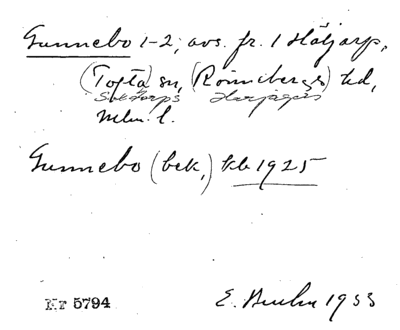 Gunnebo 1-2, avs. fr. 1 Häljarp,
(Tofta) sn, (Rönnebergs) hd,
Saxtorps Harjagers
Mlm. l.
Gunnebo (bek.) kb 1925
Nr 5794 E. 1933